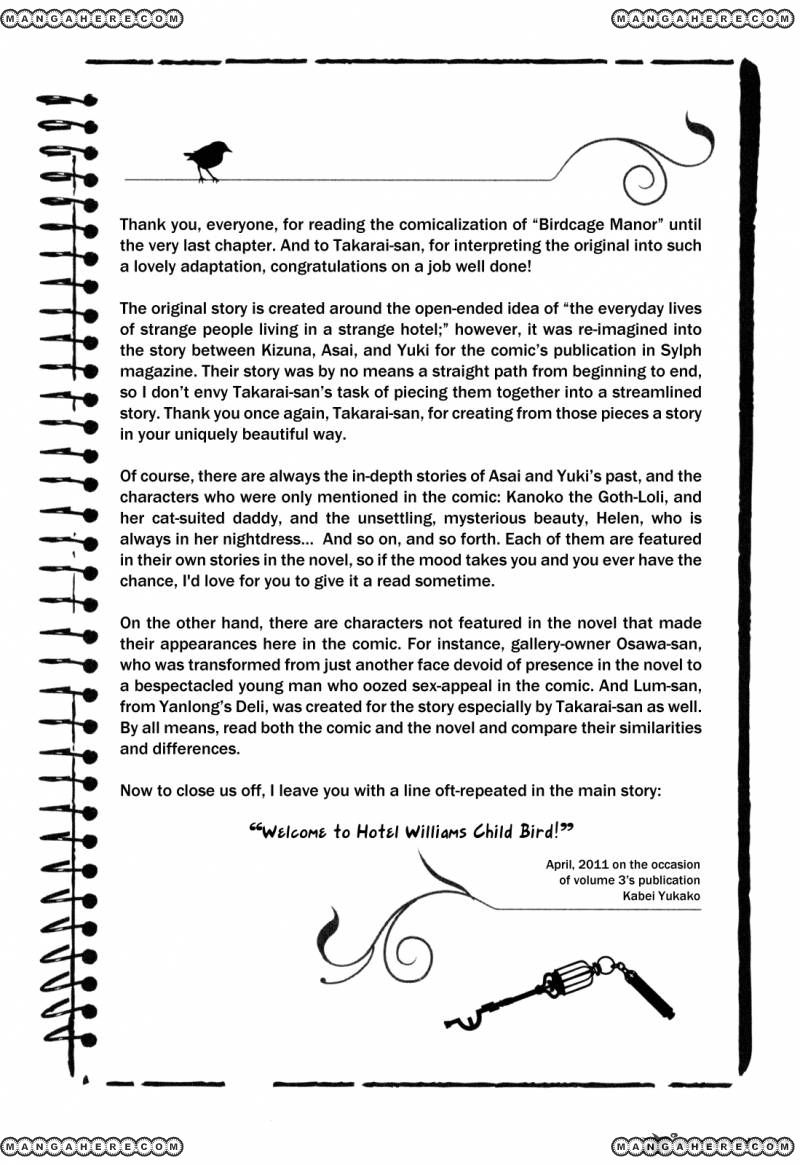 MANGAHERE.COM
MANGAHERE.COM
Thank you, everyone, for reading the comicalization of “Birdcage Manor” until
the very last chapter. And to Takarai-san, for interpreting the original into such
a lovely adaptation, congratulations on a job well done!
The original story is created around the open-ended idea of “the everyday lives
of strange people living in a strange hotel;” however, it was re-imagined into
the story between Kizuna, Asai, and Yuki for the comic’s publication in Sylph
magazine. Their story was by no means a straight path from beginning to end,
so I don’t envy Takarai-san’s task of piecing them together into a streamlined
story. Thank you once again, Takarai-san, for creating from those pieces a story
in your uniquely beautiful way.
Of course, there are always the in-depth stories of Asai and Yuki’s past, and the
characters who were only mentioned in the comic: Kanoko the Goth-Loli, and
her cat-suited daddy, and the unsettling, mysterious beauty, Helen, who is
always in her nightdress... And so on, and so forth. Each of them are featured
in their own stories in the novel, so if the mood takes you and you ever have the
chance, I'd love for you to give it a read sometime.
On the other hand, there are characters not featured in the novel that made
their appearances here in the comic. For instance, gallery-owner Osawa-san,
who was transformed from just another face devoid of presence in the novel to
a bespectacled young man who oozed sex-appeal in the comic. And Lum-san,
from Yanlong’s Deli, was created for the story especially by Takarai-san as well.
By all means, read both the comic and the novel and compare their similarities
and differences.
Now to close us off, I leave you with a line oft-repeated in the main story:
“Welcome to Hotel Williams Child Bird!”
April, 2011 on the occasion
of volume 3’s publication
Kabei Yukako
MANGAHERE.COM
MANGAHERE.COM